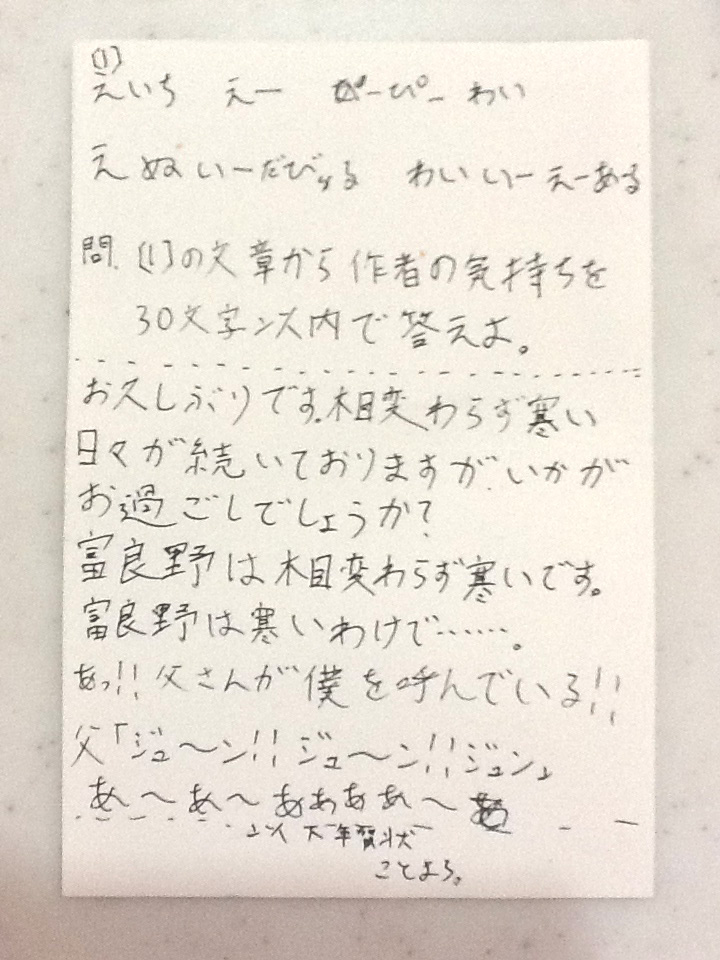 (1)
えいち えー ぴーぴー わい
えぬ いーだびゅる わい いー えーある
問. (1)の文章から作者の気持ちを
30文字以内で答えよ。
お久しぶりです。相変わらず寒い
日々が続いておりますが、いかが
お過ごしでしょうか?
富良野は相変わらず寒いです。
富良野は寒いわけで……。
あっ!!父さんが僕を呼んでいる!!
父「ジュ〜ン!!ジュ〜ン!!ジュン」
あ〜あ〜ああああ〜あ
以下年賀状
ことよろ。